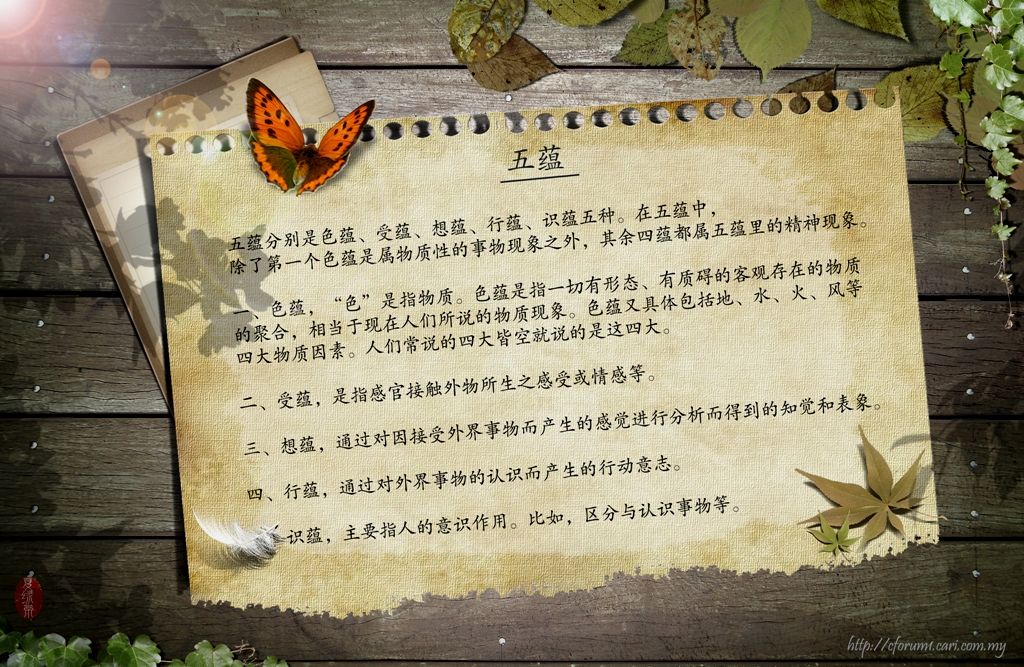 五蕴
五蕴分别是色蕴、受蕴、想蕴、行蕴、识蕴五种。在五蕴中，
除了第一个色蕴是属物质性的事物现象之外，其余四蕴都属五蕴里的精神现象。
一、色蕴，“色”是指物质。色蕴是指一切有形态、有质碍的客观存在的物质
的聚合，相当于现在人们所说的物质现象。色蕴又具体包括地、水、火、风等
四大物质因素。人们常说的四大皆空就说的是这四大。
二、受蕴，是指感官接触外物所生之感受或情感等。
三、想蕴，通过对因接受外界事物而产生的感觉进行分析而得到的知觉和表象。
四、行蕴，通过对外界事物的认识而产生的行动意志。
识蕴，主要指人的意识作用。比如，区分与认识事物等。
http://cforum1.cari.com.my